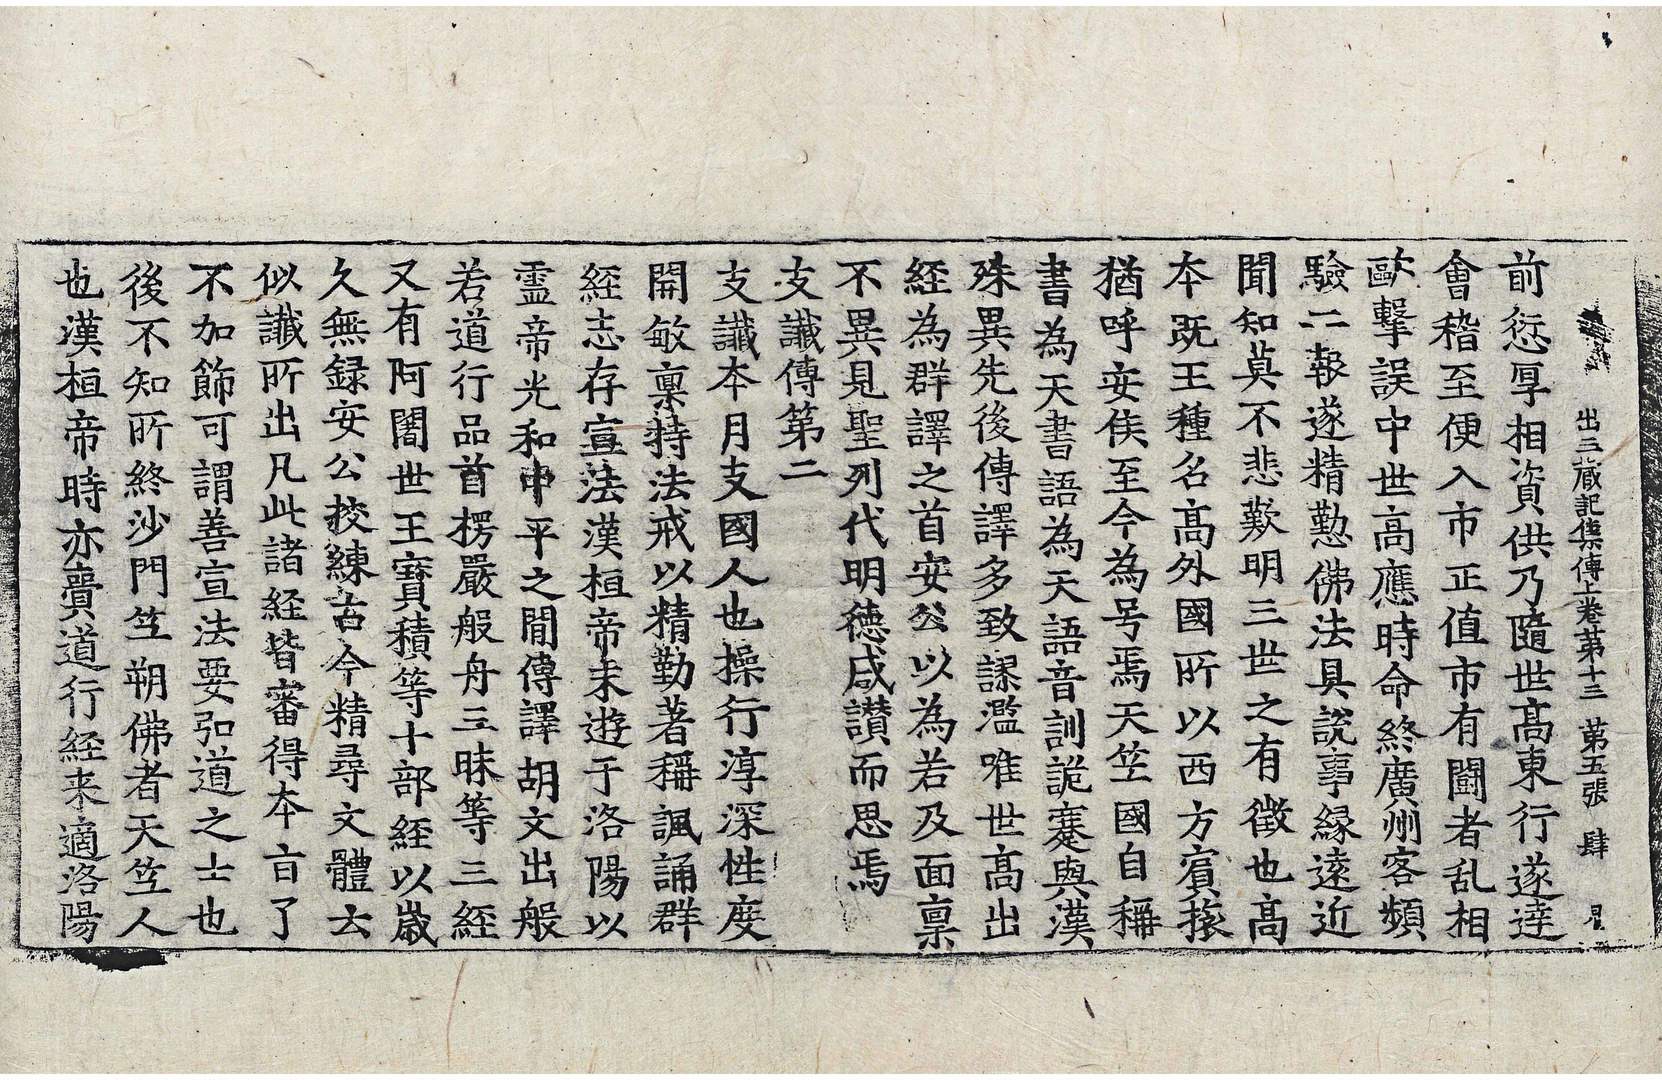 出三藏記集傳上卷第十三 第五張 肆
前愆厚相資供乃隨世髙東行遂達
會稽至便入市正值市有鬪者乱相
歐擊誤中世高應時命終廣州客頻
驗二報遂精懃佛法具說事縁遠近
聞知莫不悲歎明三世之有徵也高
本既王種名髙外國所以西方賓旅
猶呼安侯至今為号焉天竺國自稱
書為天書語為天語音訓詭蹇與漢
殊異先後傳譯多致謬濫唯世髙出
經為群譯之首安公以為若及面稟
不異見聖列代明德咸讃而思焉
支讖傳第二
支讖本月支國人也操行淳深性度
開敏稟持法戒以精勤著稱諷誦群
經志存宣法漢桓帝末遊于洛陽以
靈帝光和中平之間傳譯胡文出般
若道行品首楞嚴般舟三昧等三經
又有阿闍世王寶積等十部經以歲
久無録安公挍練古今精尋文體云
似讖所出凡此諸經皆審得本旨了
不加飾可謂善宣法要弘道之士也
後不知所終沙門竺朔佛者天竺人
也漢桓帝時亦賷道行經来適洛陽